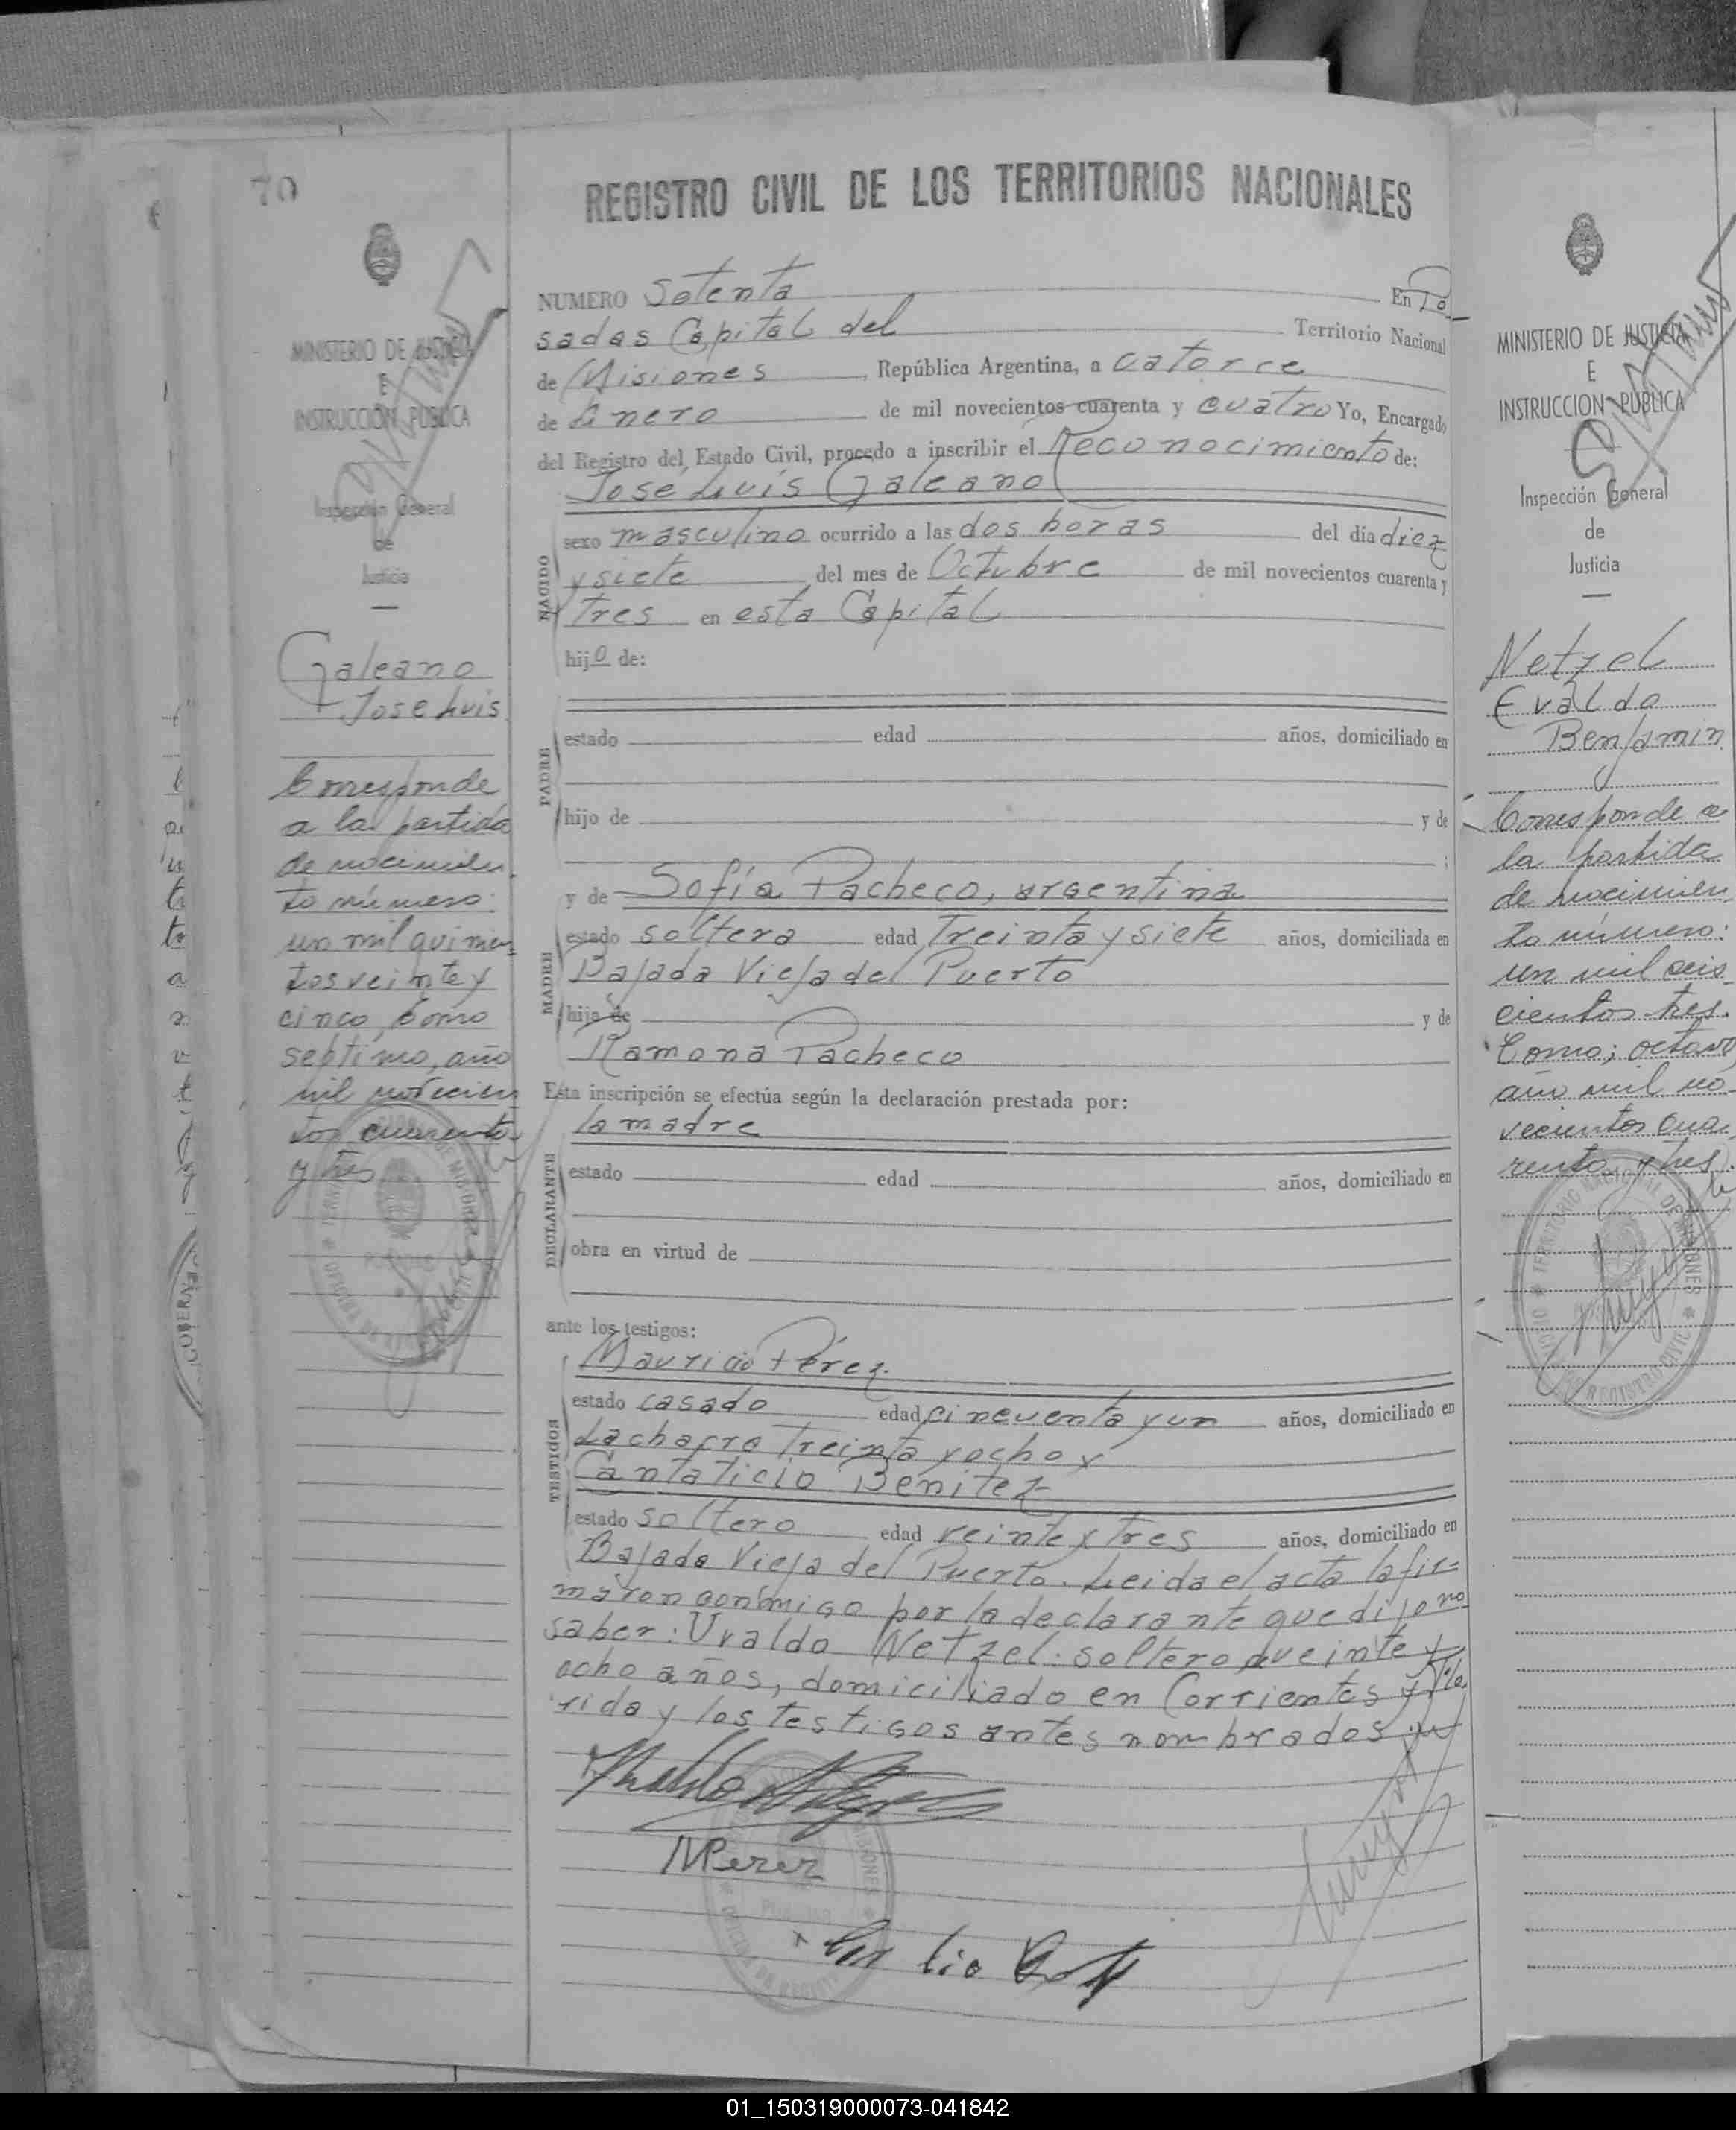 70
REGISTRO CIVIL DE LOS TERRITORIOS NACIONALES
MINISTERIO DE JUSTICIA
E
INSTRUCCIÓN PUBLICA
Inspección General
de
Justicia
Galeano
Jose Luis
Corresponde
a la partida
de nacimien-
to número:
un mil quinien-
tos veinte y
cinco, tomo
septimo, año
mil novecien
tos cuarenta
y tres
NUMERO Setenta En Po
sadas Capital del Territorio Nacional
de Misiones República Argentina, a catorce
de Enero de mil novecientos cuarenta y cuatro Yo, Encargado
del Registro del Estado Civil, procedo a inscribir el Reconocimiento de:
Jose Luis Galeano
NACIDO
sexo masculino ocurrido a las dos horas del dia diez
y siete del mes de Octubre de mil novecientos cuarenta y
tres en esta Capital
hijo de:
PADRE
estado edad años, domiciliado en
hijo de y de
;
y de Sofía Pacheco, argentina
MADRE
estado soltera edad treinta y siete años, domiciliada en
Bajada Vieja del Puerto
hija de y de
Ramona Pacheco
Esta inscripción se efectúa según la declaración prestada por:
la madre
DECLARANTE
estado edad años, domiciliado en
obra en virtud de
ante los testigos:
Mauricio Pérez.
TESTIGOS
estado casado edad cincuenta y un años, domiciliado en
La chacra treinta y ocho y
Cantalicio Benitez
estado soltero edad veinte y tres años, domiciliado en
Bajada Vieja del Puerto. Leida el acta la fir-
maron conmigo por la declarante que dijo no
saber: Uvaldo Netzel. soltero veinte y
ocho años, domiciliado en Corrientes y Flo
rida y los testigos antes nombrados
MPerez
MINISTERIO DE JUSTICIA
E
INSTRUCCION PUBLICA
Inspección General
de
Justicia
Netzel
Evaldo
Benjamin
Corresponde a
la partida
de nacimien-
to número:
un mil seis
cientos tres.
Tomo; octavo
año mil no-
vecientos cua-
renta y tres.
TERRITORIO NACIONAL DE MISIONES
OFICINA DE REGISTRO CIVIL
GOBERNA
01_150319000073-041842